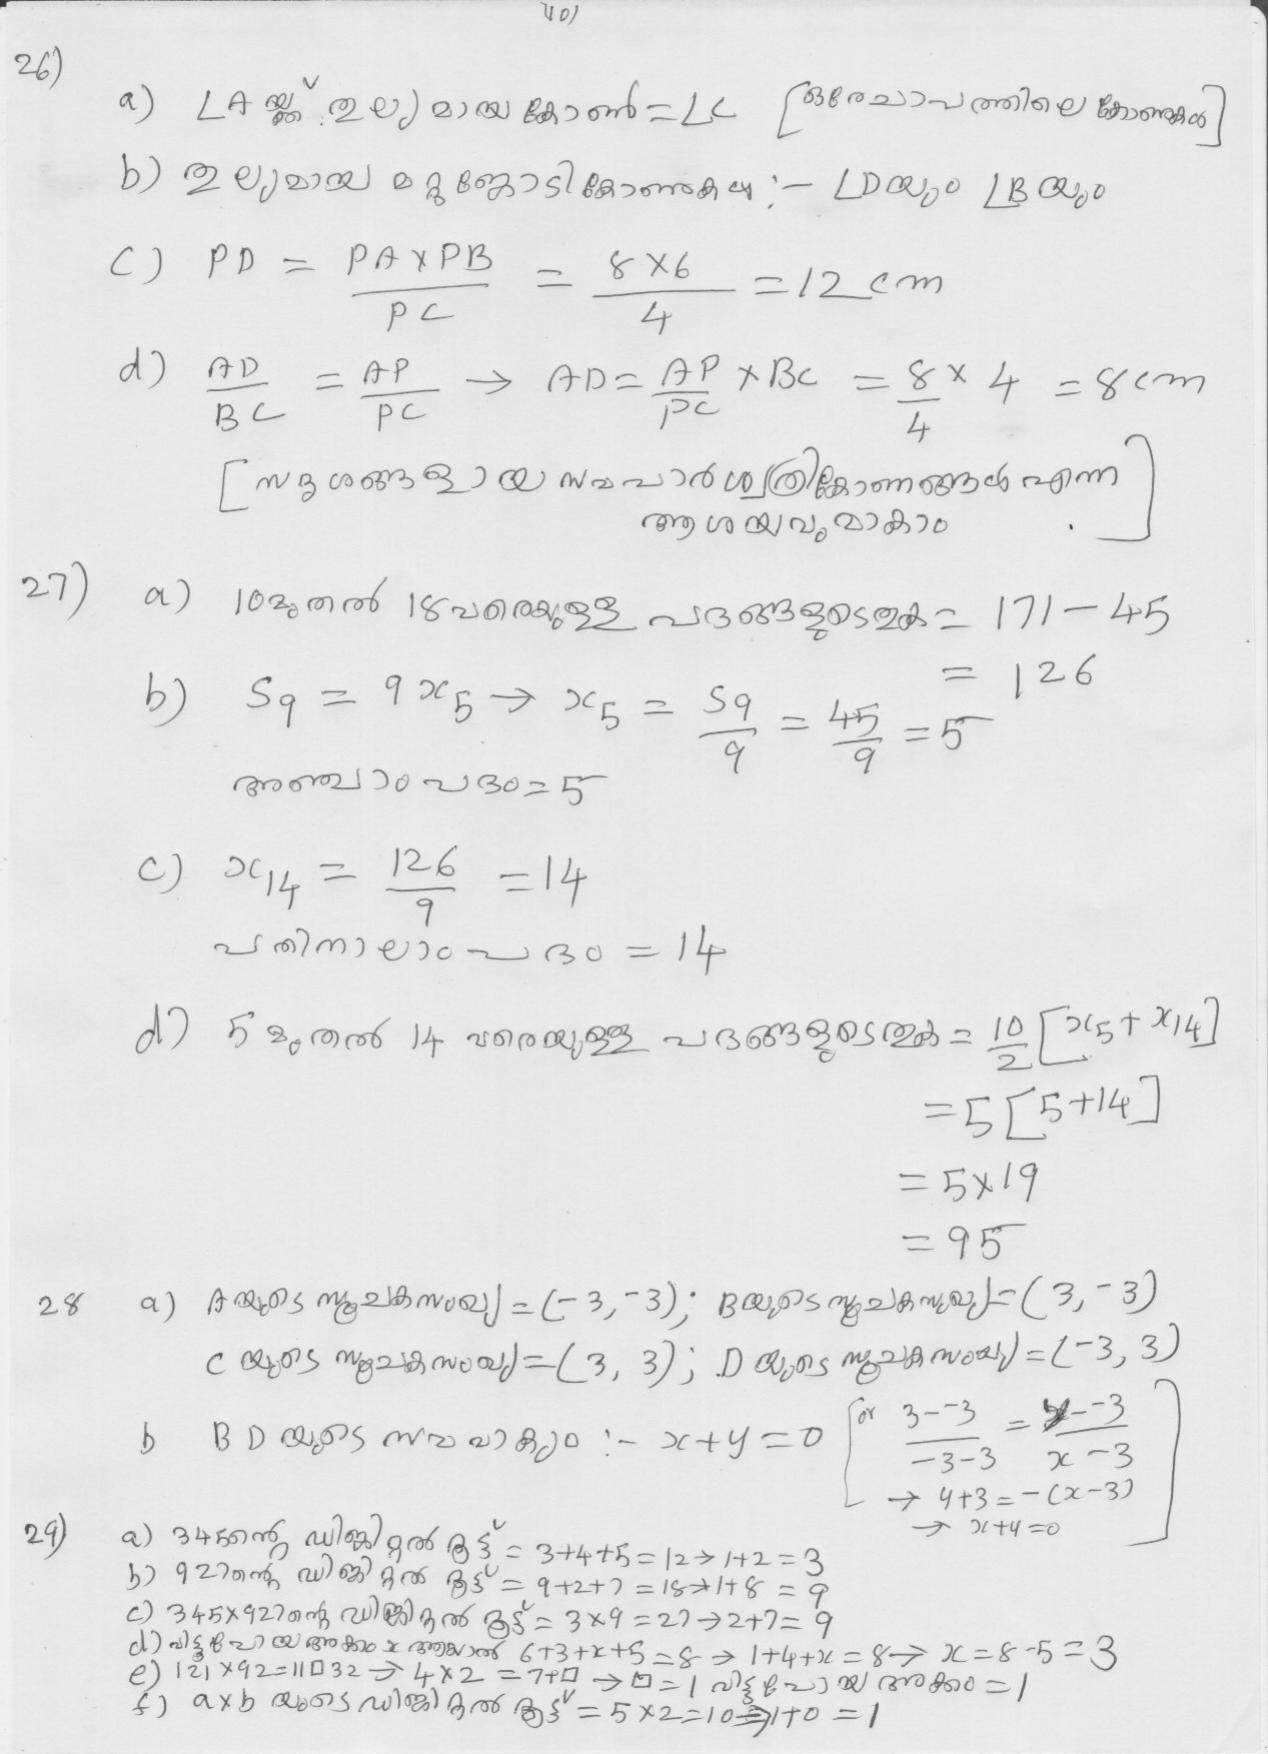 26)
a) ∠A യ്ക്ക് തുല്യമായ കോൺ = ∠C [ഒരേ ചാപത്തിലെ കോണുകൾ]
b) തുല്യമായ മറ്റു ജോടി കോണുകൾ :- ∠D യും ∠B യും
c) PD = PA × PB / PC = 8 × 6 / 4 = 12 cm
d) AD / BC = AP / PC → AD = AP / PC × BC = 8 / 4 × 4 = 8 cm
[സദൃശങ്ങളായ സമപാർശ്വത്രികോണങ്ങൾ എന്ന
ആശയവുമാകാം]
27) a) 10 മുതൽ 18 വരെയുള്ള പദങ്ങളുടെ തുക = 171 - 45
= 126
b) S9 = 9 x5 → x5 = S9 / 9 = 45 / 9 = 5
അഞ്ചാം പദം = 5
c) x14 = 126 / 9 = 14
പതിനാലാം പദം = 14
d) 5 മുതൽ 14 വരെയുള്ള പദങ്ങളുടെ തുക = 10 / 2 [x5 + x14]
= 5 [5 + 14]
= 5 × 19
= 95
28 a) A യുടെ സൂചകസംഖ്യ = (-3, -3); B യുടെ സൂചകസംഖ്യ = (3, -3)
C യുടെ സൂചകസംഖ്യ = (3, 3); D യുടെ സൂചകസംഖ്യ = (-3, 3)
b BD യുടെ സമവാക്യം :- x + y = 0 [or 3 - -3 / -3 - 3 = y - -3 / x - 3
→ y + 3 = -(x - 3)
→ x + y = 0]
29) a) 345 ന്റെ ഡിജിറ്റൽ റൂട്ട് = 3+4+5 = 12 → 1+2 = 3
b) 927 ന്റെ ഡിജിറ്റൽ റൂട്ട് = 9+2+7 = 18 → 1+8 = 9
c) 345 × 927 ന്റെ ഡിജിറ്റൽ റൂട്ട് = 3×9 = 27 → 2+7 = 9
d) വിട്ടുപോയ അക്കം x ആയാൽ 6+3+x+5 = 8 → 1+4+x = 8 → x = 8-5 = 3
e) 121 × 92 = 11□32 → 4×2 = 7+□ → □ = 1 വിട്ടുപോയ അക്കം = 1
f) a×b യുടെ ഡിജിറ്റൽ റൂട്ട് = 5×2 = 10 → 1+0 = 1